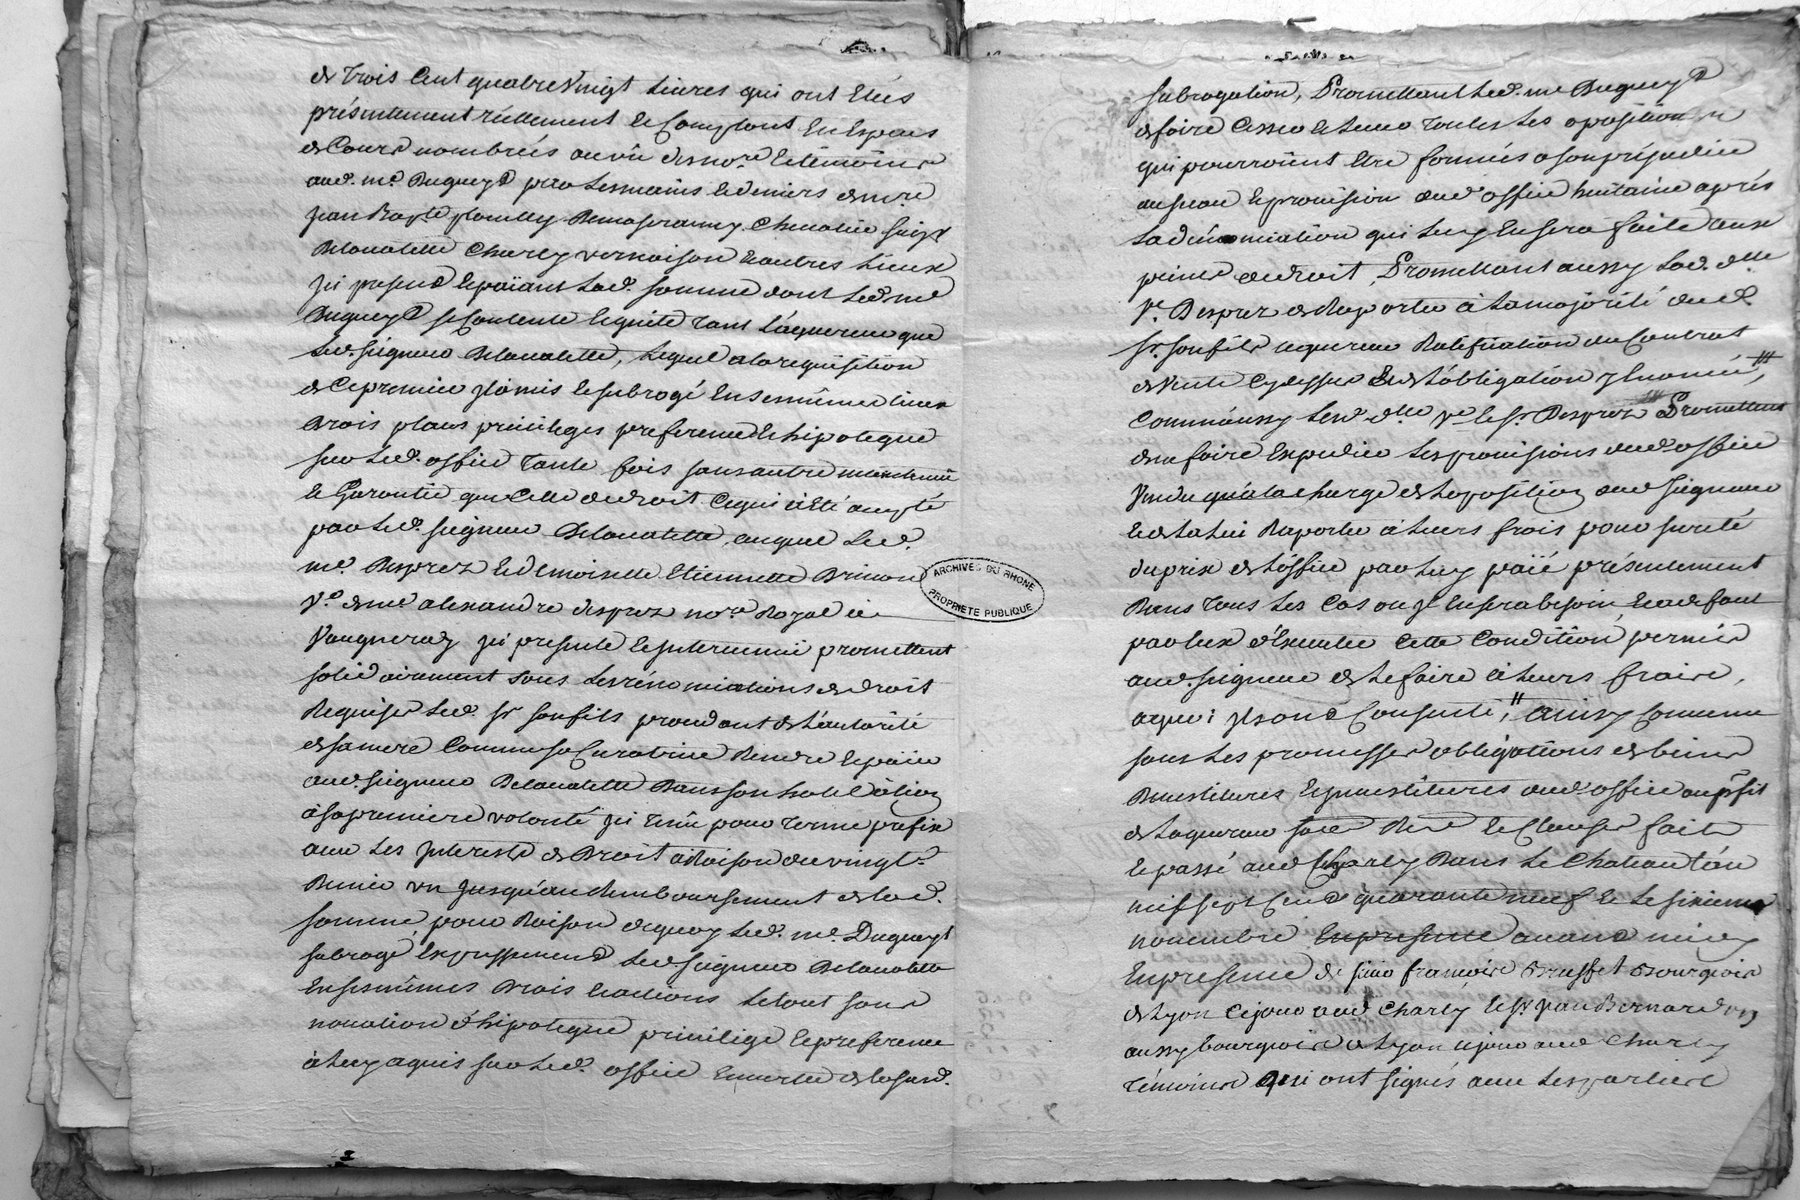 de trois Cent quatre Vingt Livres qui ont Etés
présentement réellement et Comptant En Espèces
de Cours nombrées au vû des no.re et témoins
aud. m.e Duguey par Les mains et deniers de m.re
jean Bap.te
Delavalette Charly vernaison et autres Lieux
ici present et païant Lad. somme dont Led. m.e
Duguey se Contente et quitte tant L'aquereur que
Led. seigneur Delavalette, Lequel a la requisition
de Ce premier il a mis et subrogé En ses mêmes lieux
Droits places privileges preference et hipoteque
sur Led. office toute fois sans autre maintenüe
et Garantie que Celle de droit Ce qui a Eté accepté
par Led. seigneur Delavalette, auquel Led.
m.e Desprez et demoiselle Etiennette Brinon
V.e de m.e alexandre desprez no.re Royal à
Vaugneray ici presente et intervenüe promettent
solidairement sous Les rénonciations de droit
Requises Led. S.r son fils procedant de L'autorité
de sa mere Comme sa Curatrice Rendre et païer
aud. seigneur Delavalette Dans son hotel à Lion
à sa premiere volonté ici tenu pour terme prefix
avec Les interests de Droit à Raison du vingt.e
Denier un jusqu'au Remboursement de lad.
somme, pour Raison de quoy Led. m.e Duguey
subroge Expressement Led. seigneur Delavalette
En ses mêmes Droits et actions Le tout sans
novation d'hipoteque privilege et preference
à Luy aquis sur Led. office En vertu de la susd.
subrogation, Promettant Led. m.e Duguey
de faire Cesser et Lever toutes Les oposition
qui pourroient Etre formées a son préjudice
au sceau et provision dud. office huitaine après
La dénonciation qui Luy En sera faite aux
peines de droit, Promettant aussy Lad. d.lle
V.e Desprez de Raporter à La majorité dud.
S.r son fils aquereur Ratification du Contrat
de Vente Cy dessus Et de L'obligation y Enoncée,
Comme aussy Lesd. d.lle V.e et S.r Desprez Promettent
de ne faire Expedier Les provisions dud. office
Vendu qu'à la charge de L'oposition dud. seigneur
et de La Lui Raporter à Leurs frais pour sureté
du prix de L'office par Luy païé présentement
Dans tous Les Cas ou il En sera besoin, Et a defaut
par Eux d'Executer Cette Condition, permis
aud. seigneur de Le faire à Leurs fraix,
a quoi ils ont Consenti, ainsy Convenu
sous Les promesses obligations de biens
Devestitures et investitures dud. office au p.fit
de L'aquereur et Clauses fait
et passé aud. Charly Dans Le Chateau L'an
mil sept Cent quarante neuf et Le sixieme
novembre En presence avant midy
En presence de sieur francoise Brusset Bourgeois
de Lyon sejour aud. Charly et S.r jean Bernard
aussy bourgeois de Lyon sejour aud. Charly
témoins qui ont signés avec Les parties
ARCHIVES DU RHONE
PROPRIETE PUBLIQUE